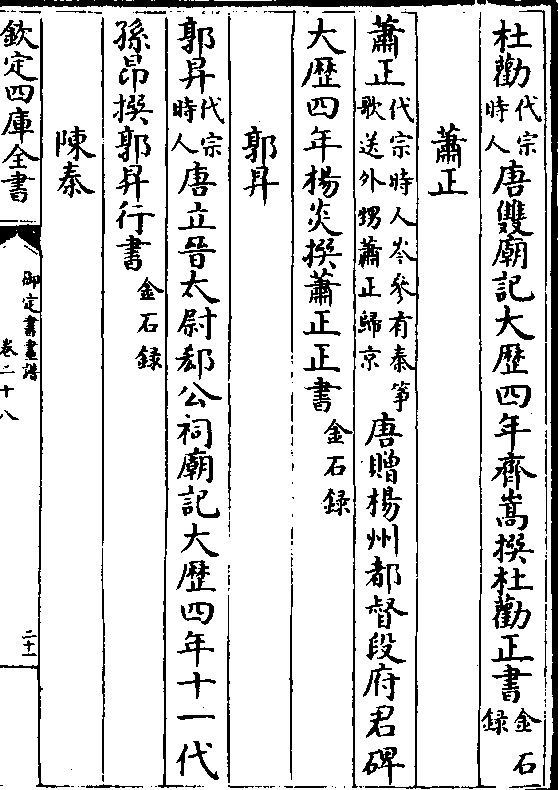 杜勸代宗時人唐雙廟記大歷四年齊嵩撰杜勸正書金石錄
蕭正
蕭正代宗時人岑參有秦箏歌送外甥蕭正歸京唐贈楊州都督段府君碑
大歷四年楊炎撰蕭正正書金石録
郭昇
郭昇代宗時人唐立晉太尉郄公祠廟記大歷四年十一代
孫昂撰郭昇行書金石録
陳泰
欽定四庫全書
御定書畫譜
卷二十八
二十一